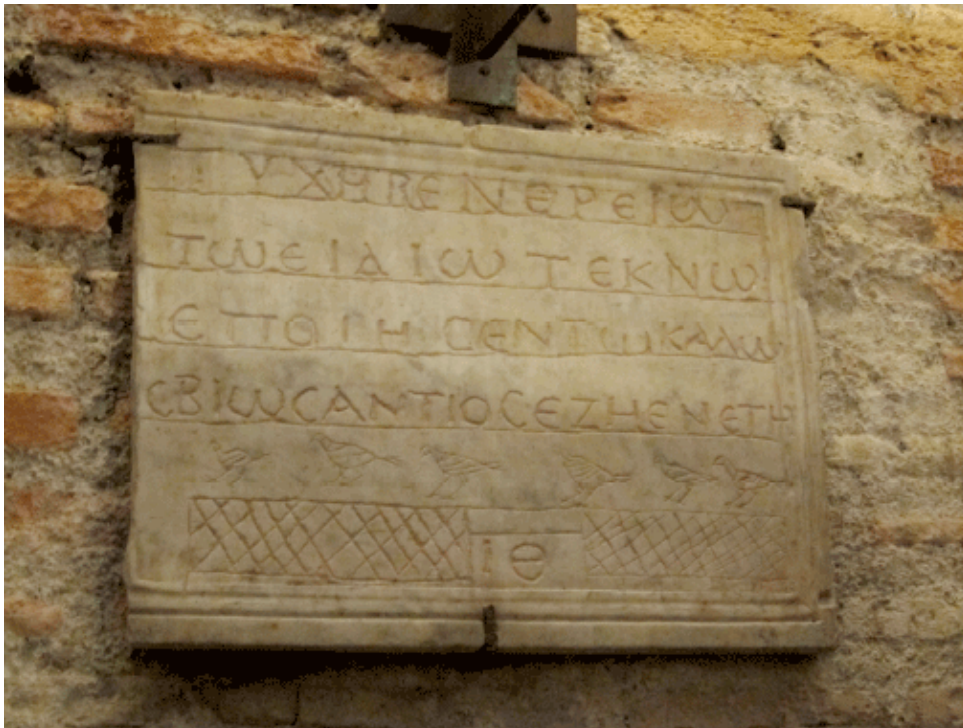 ΤΥΧΗΒΕΝΕΡΕΙω
ΤωΕΙΔΙω ΤΕΚΝω
ΕΠΟΙΗϹΕΝΤωΚΑΛω
ϹΒΙωϹΑΝΤΙΟϹΕΖΗΕΝΕΤΗ
ΙΕ